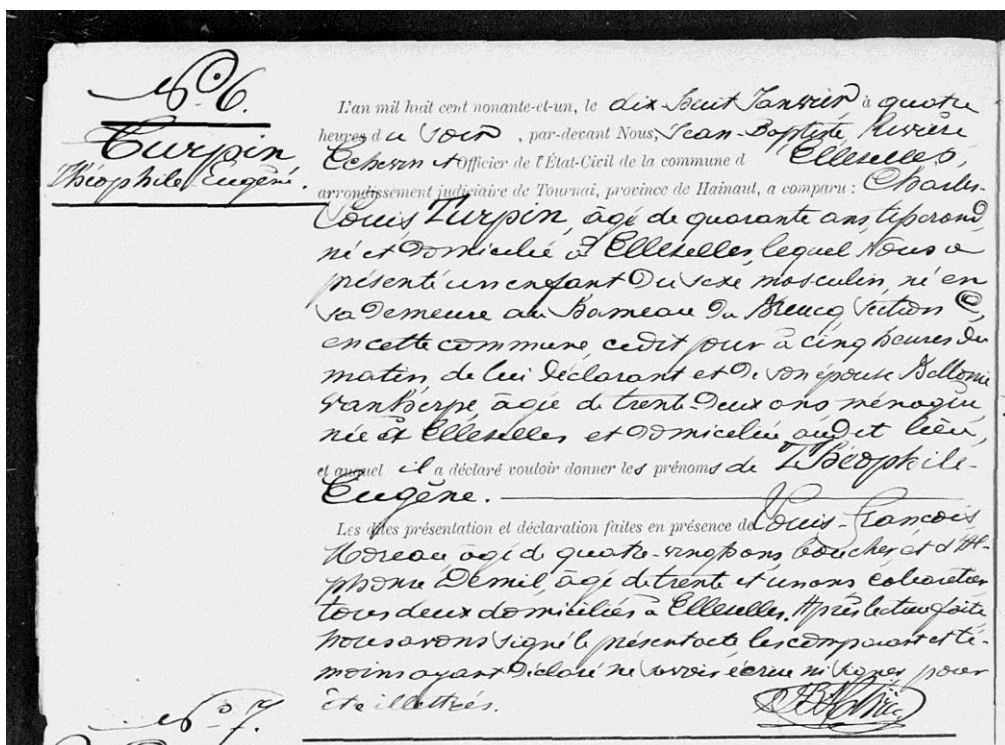 N° 6.
Turpin
Théophile Eugène.
L'an mil huit cent nonante-et-un, le dix-huit Janvier à quatre
heures du soir, par-devant Nous, Jean-Baptiste Rivière
Echevin et Officier de l'État-Civil de la commune d Ellezelles,
arrondissement judiciaire de Tournai, province de Hainaut, a comparu : Charles-
Louis Turpin, âgé de quarante ans, tisserand,
né et domicilié à Ellezelles, lequel Nous a
présenté un enfant du sexe masculin, né en
sa demeure au hameau du Breucq section C,
en cette commune, cedit jour à cinq heures du
matin, de lui déclarant et de son épouse
âgée de trente-deux ans ménagère,
née à Ellezelles et domiciliée audit lieu,
et auquel il a déclaré vouloir donner les prénoms de Théophile-
Eugène.
Les dites présentation et déclaration faites en présence de Louis-François
Moreau âgé de quatre-vingt ans boucher, et d'Al-
phonse âgé de trente et un ans cabaretier
tous deux domiciliés à Ellezelles. Après lecture faite
nous avons signé le présent acte, les comparant et té-
moins ayant déclaré ne savoir écrire ni signer pour
être illettrés.
N° 7.